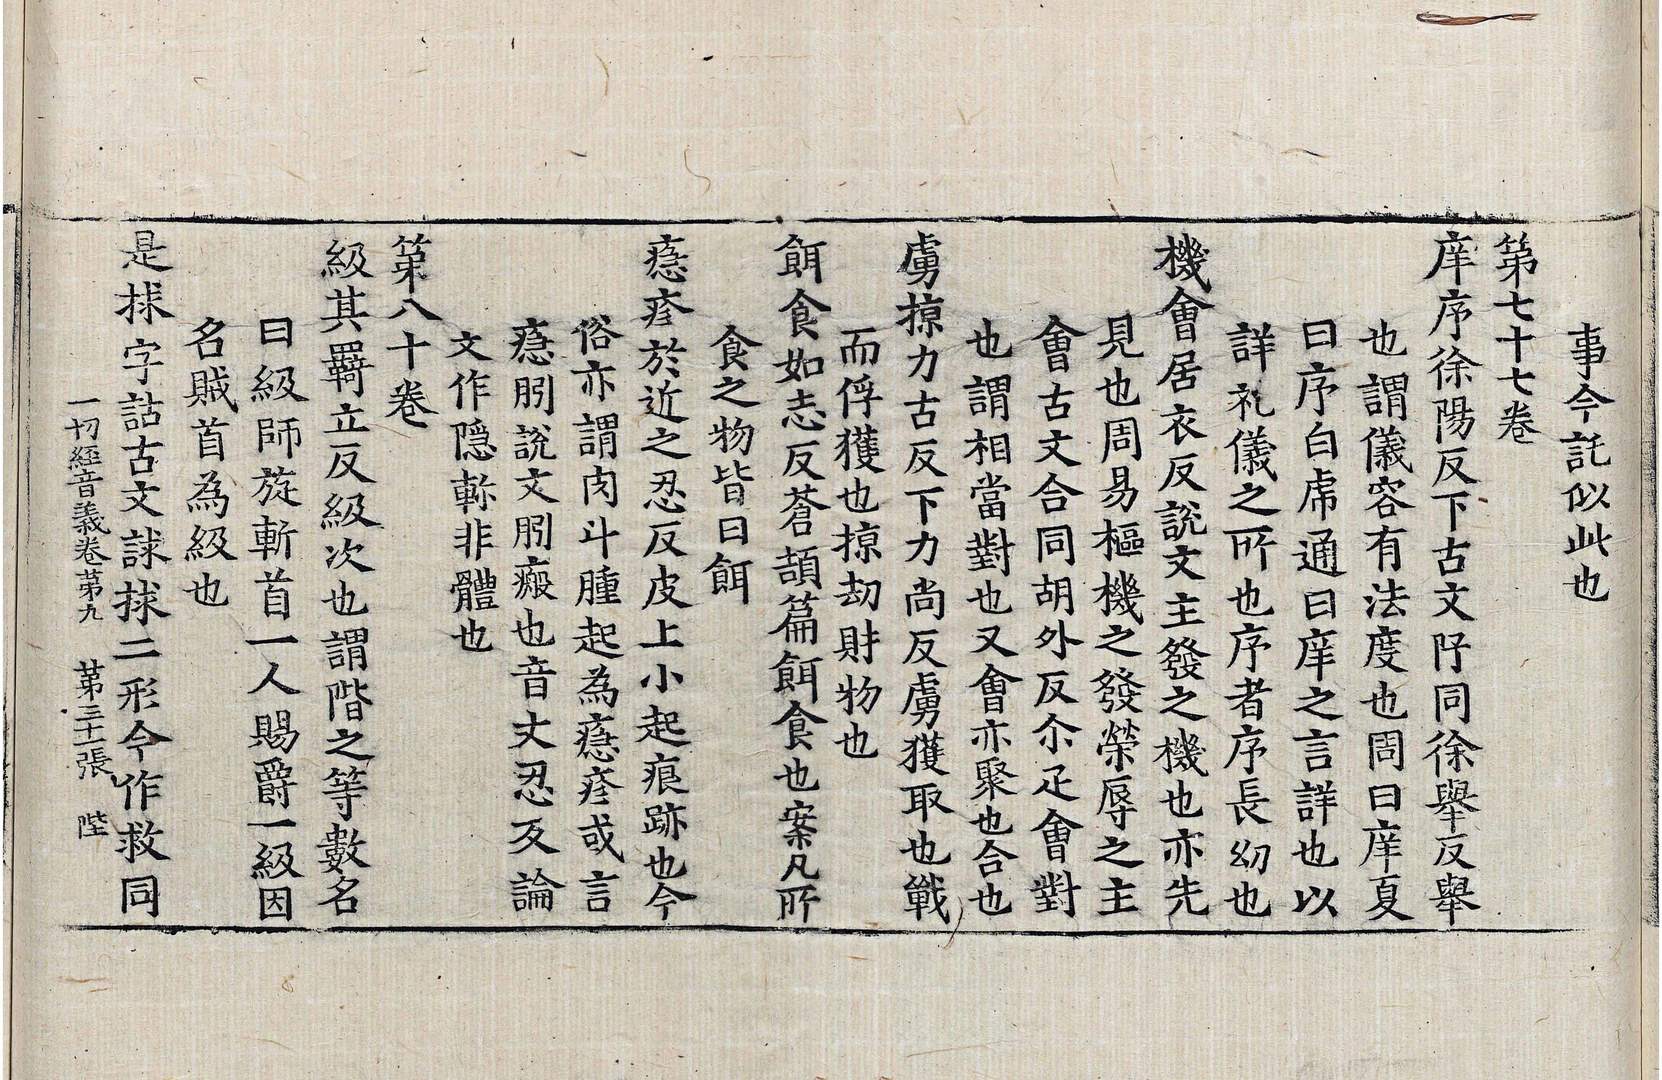 事今託似此也
第七十七卷
庠序徐陽反下古文㡰同徐舉反舉
也謂儀容有法度也周曰庠夏
曰序白虎通曰庠之言詳也以
詳礼儀之所也序者序長幼也
機會居衣反說文主發之機也亦先
見也周易樞機之發榮辱之主
會古文合同胡外反尒疋會對
也謂相當對也又會亦聚也合也
虜掠力古反下力尚反虜獲取也戰
而俘獲也掠劫財物也
餌食如志反蒼頡篇餌食也案凡所
食之物皆曰餌
㥯疹於近之忍反皮上小起痕跡也今
俗亦謂肉斗腫起為㥯疹或言
㥯胗說文胗瘢也音丈忍反論
文作隱軫非體也
第八十卷
級其羇立反級次也謂階之等數名
曰級師旋斬首一人賜爵一級因
名賊首為級也
是捄字詁古文誎捄二形今作救同
一切經音義卷第九 第三十一張 陛